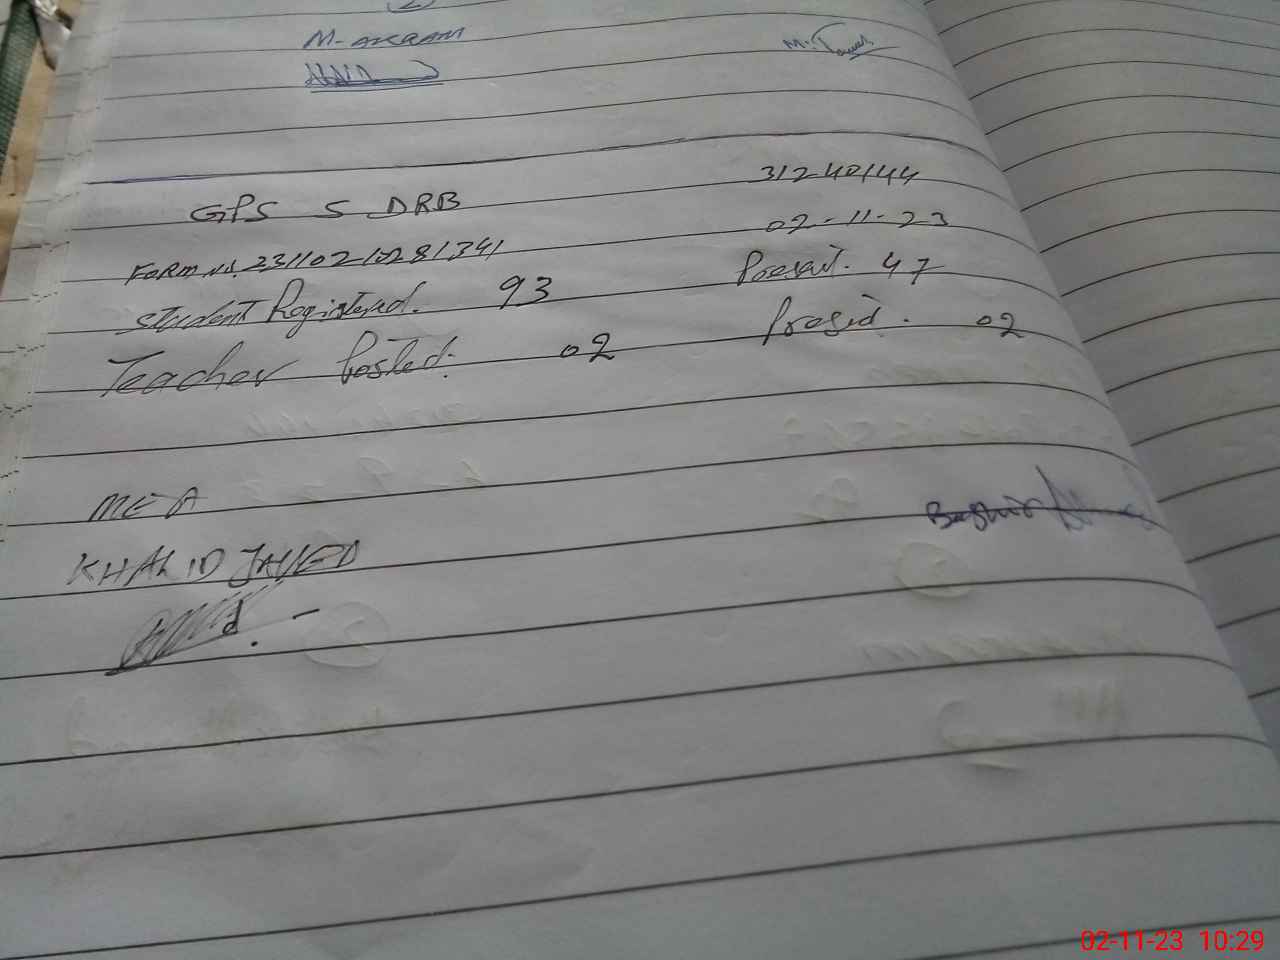 M. AKRAM
GPS 5 DRB 31240144
02-11-23
FORM No. 23110210281341
Student Registered. 93 Present. 47
Teacher Posted. 02 Present. 02
MEA
KHALID JAVED
Bashir
02-11-23 10:29